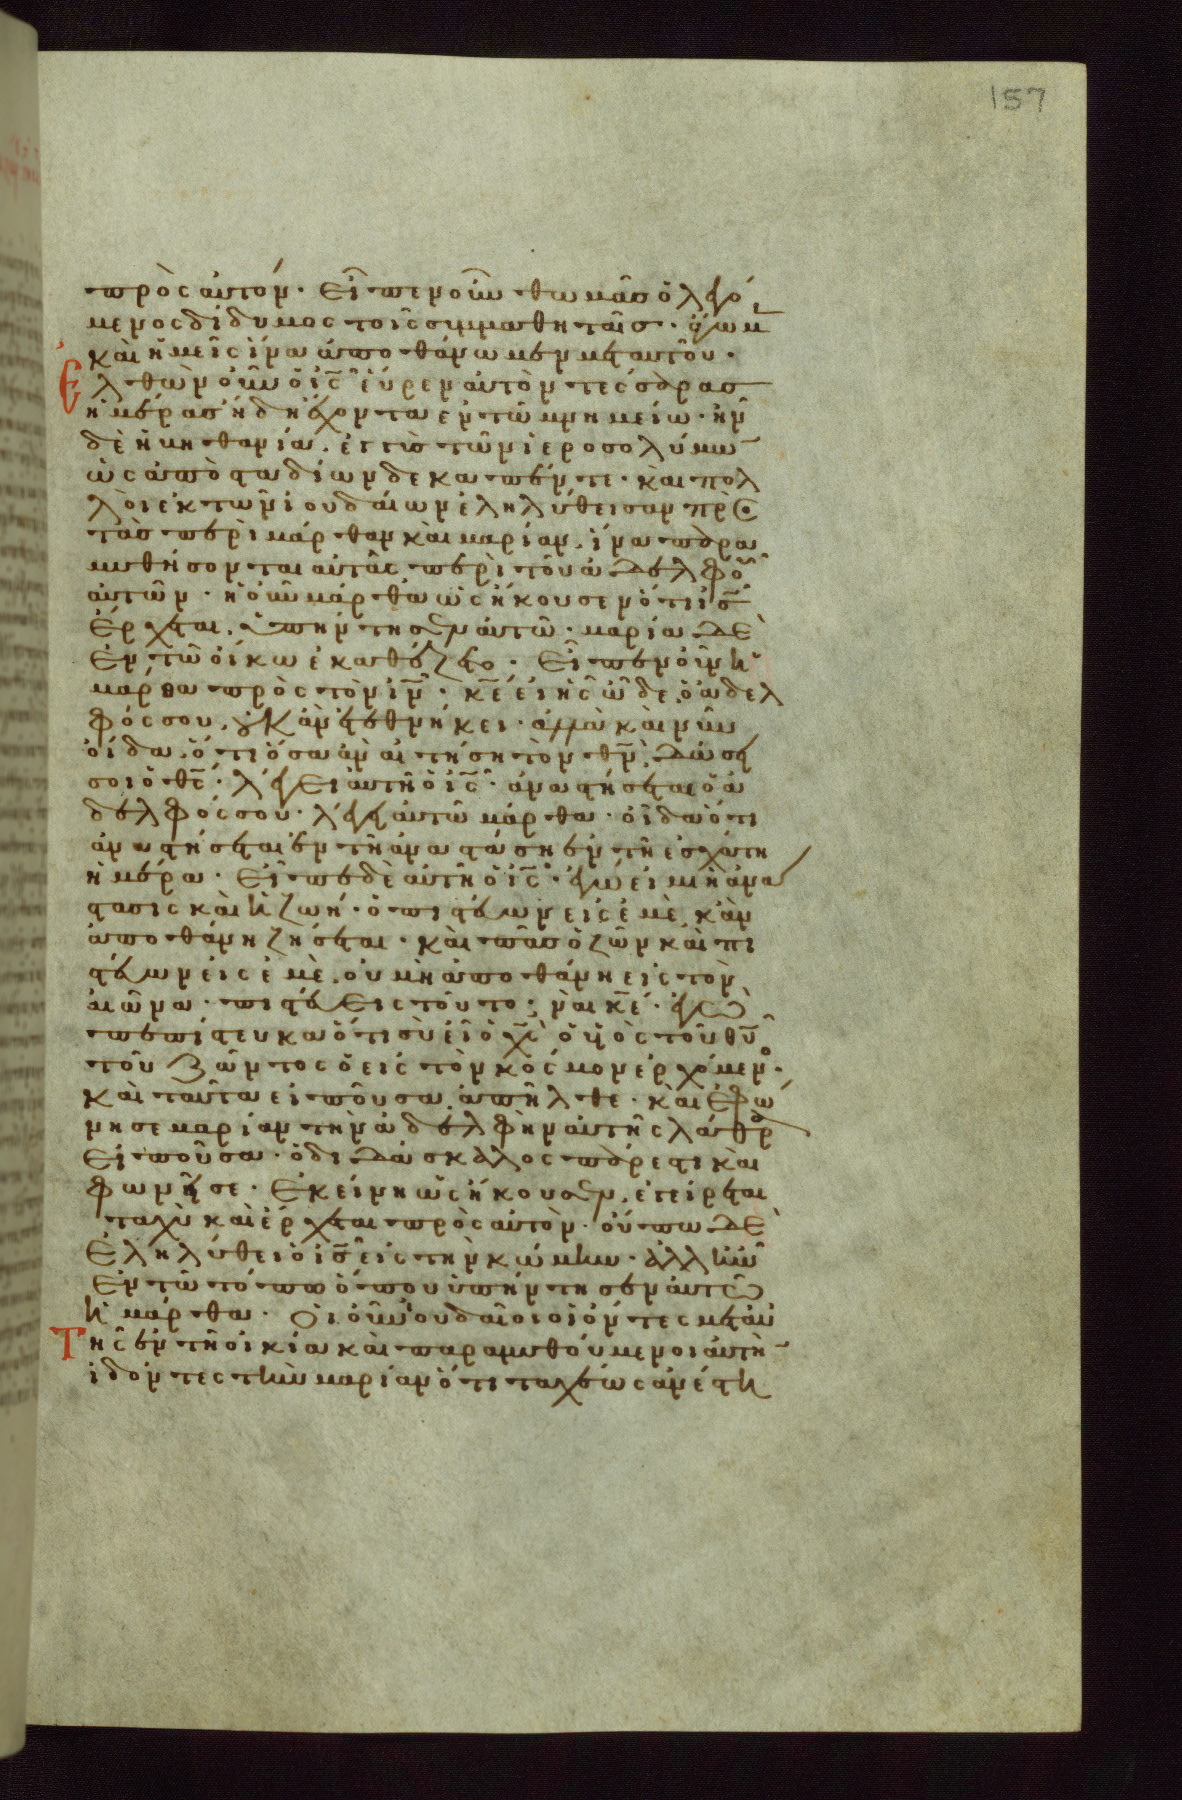 157
πρὸς αὐτόν· Εἶπεν οὖν θωμᾶσ ὁ λεγό
μενος δίδυμος τοῖς συμμαθηταῖσ· ἄγωμ
καὶ ἡμεῖς ἵνα ἀποθάνωμεν μετ αὐτοῦ·
Ελθὼν οὖν ὁ ἰς̅ εὗρεν αὐτὸν τέσσαρασ
ἡμέρασ ἤδη ἔχοντα ἐν τῶ μνημείω· ἦν
δὲ ἡ βηθανία, ἐγγὺς τῶν ἱεροσολύμω̅
ὡς ἀπὸ σταδίων δεκαπέντε· καὶ πολ
λοὶ ἐκ τῶν ἰουδαίων ἐληλύθεισαν πρὸς
τὰσ περὶ μάρθαν καὶ μαρίαν, ἵνα παρα
μυθήσονται αὐτὰς περὶ τοῦ ἀδελφοῦ
αὐτῶν· ἡ οὖν μάρθα ὡς ἤκουσεν ὅτι ἰς̅
ἔρχεται, ὑπήντησεν αὐτῶ· μαρία δὲ
ἐν τῶ οἴκω ἐκαθέζετο· Εἶπεν οὖν ἡ
μάρθα πρὸς τὸν ἰν̅· κε̅ εἰ ἦς ὧδε, ὁ ἀδελ
φός σου, οὐκ ἂν ἐτεθνήκει· ἀλλὰ καὶ νῦν
οἶδα, ὅτι ὅσα ἂν αἰτήση τὸν θν̅, δώσει
σοι ὁ θς̅· λέγει αὐτῆ ὁ ἰς̅· ἀναστήσεται ὁ ἀ
δελφός σου· λέγει αὐτῶ μάρθα· οἶδα ὅτι
ἀναστήσεται ἐν τῆ ἀναστάσει ἐν τῆ ἐσχάτη
ἡμέρα· Εἶπε δὲ αὐτῆ ὁ ἰς̅· ἐγώ εἰμι ἡ ἀνά
στασις καὶ ἡ ζωή· ὁ πιστεύων εἰς ἐμὲ, κἂν
ἀποθάνη ζήσεται· καὶ πᾶσ ὁ ζῶν καὶ πι
στεύων εἰς ἐμὲ, οὐ μὴ ἀποθάνη εἰς τὸν
αἰῶνα· πιστεύεις τοῦτο; ναὶ κε̅· ἐγὼ
πεπίστευκα ὅτι σὺ εἶ ὁ χς̅ ὁ υἱὸς τοῦ θυ̅
τοῦ ζῶντος ὁ εἰς τὸν κόσμον ἐρχόμενο·
καὶ ταῦτα εἰποῦσα, ἀπῆλθε· καὶ ἐφώ
νησε μαρίαν τὴν ἀδελφὴν αὐτῆς λάθρα
εἰποῦσα· ὁ διδάσκαλος πάρεστι καὶ
φωνεῖ σε· Ἐκείνη ὡς ἤκουσεν, ἐγείρεται
ταχὺ καὶ ἔρχεται πρὸς αὐτόν· οὔπω δὲ
ἐληλύθει ὁ ἰς̅ εἰς τὴν κώμην· ἀλλ ἦν
ἐν τῶ τόπω ὅπου ὑπήντησεν αὐτῶ
ἡ μάρθα· Οἱ οὖν ἰουδαῖοι οἱ ὄντες μετ αὐ
Της ἐν τῆ οἰκία καὶ παραμυθούμενοι αὐτὴ̅
ἰδόντες τὴν μαρίαν ὅτι ταχέως ἀνέστη